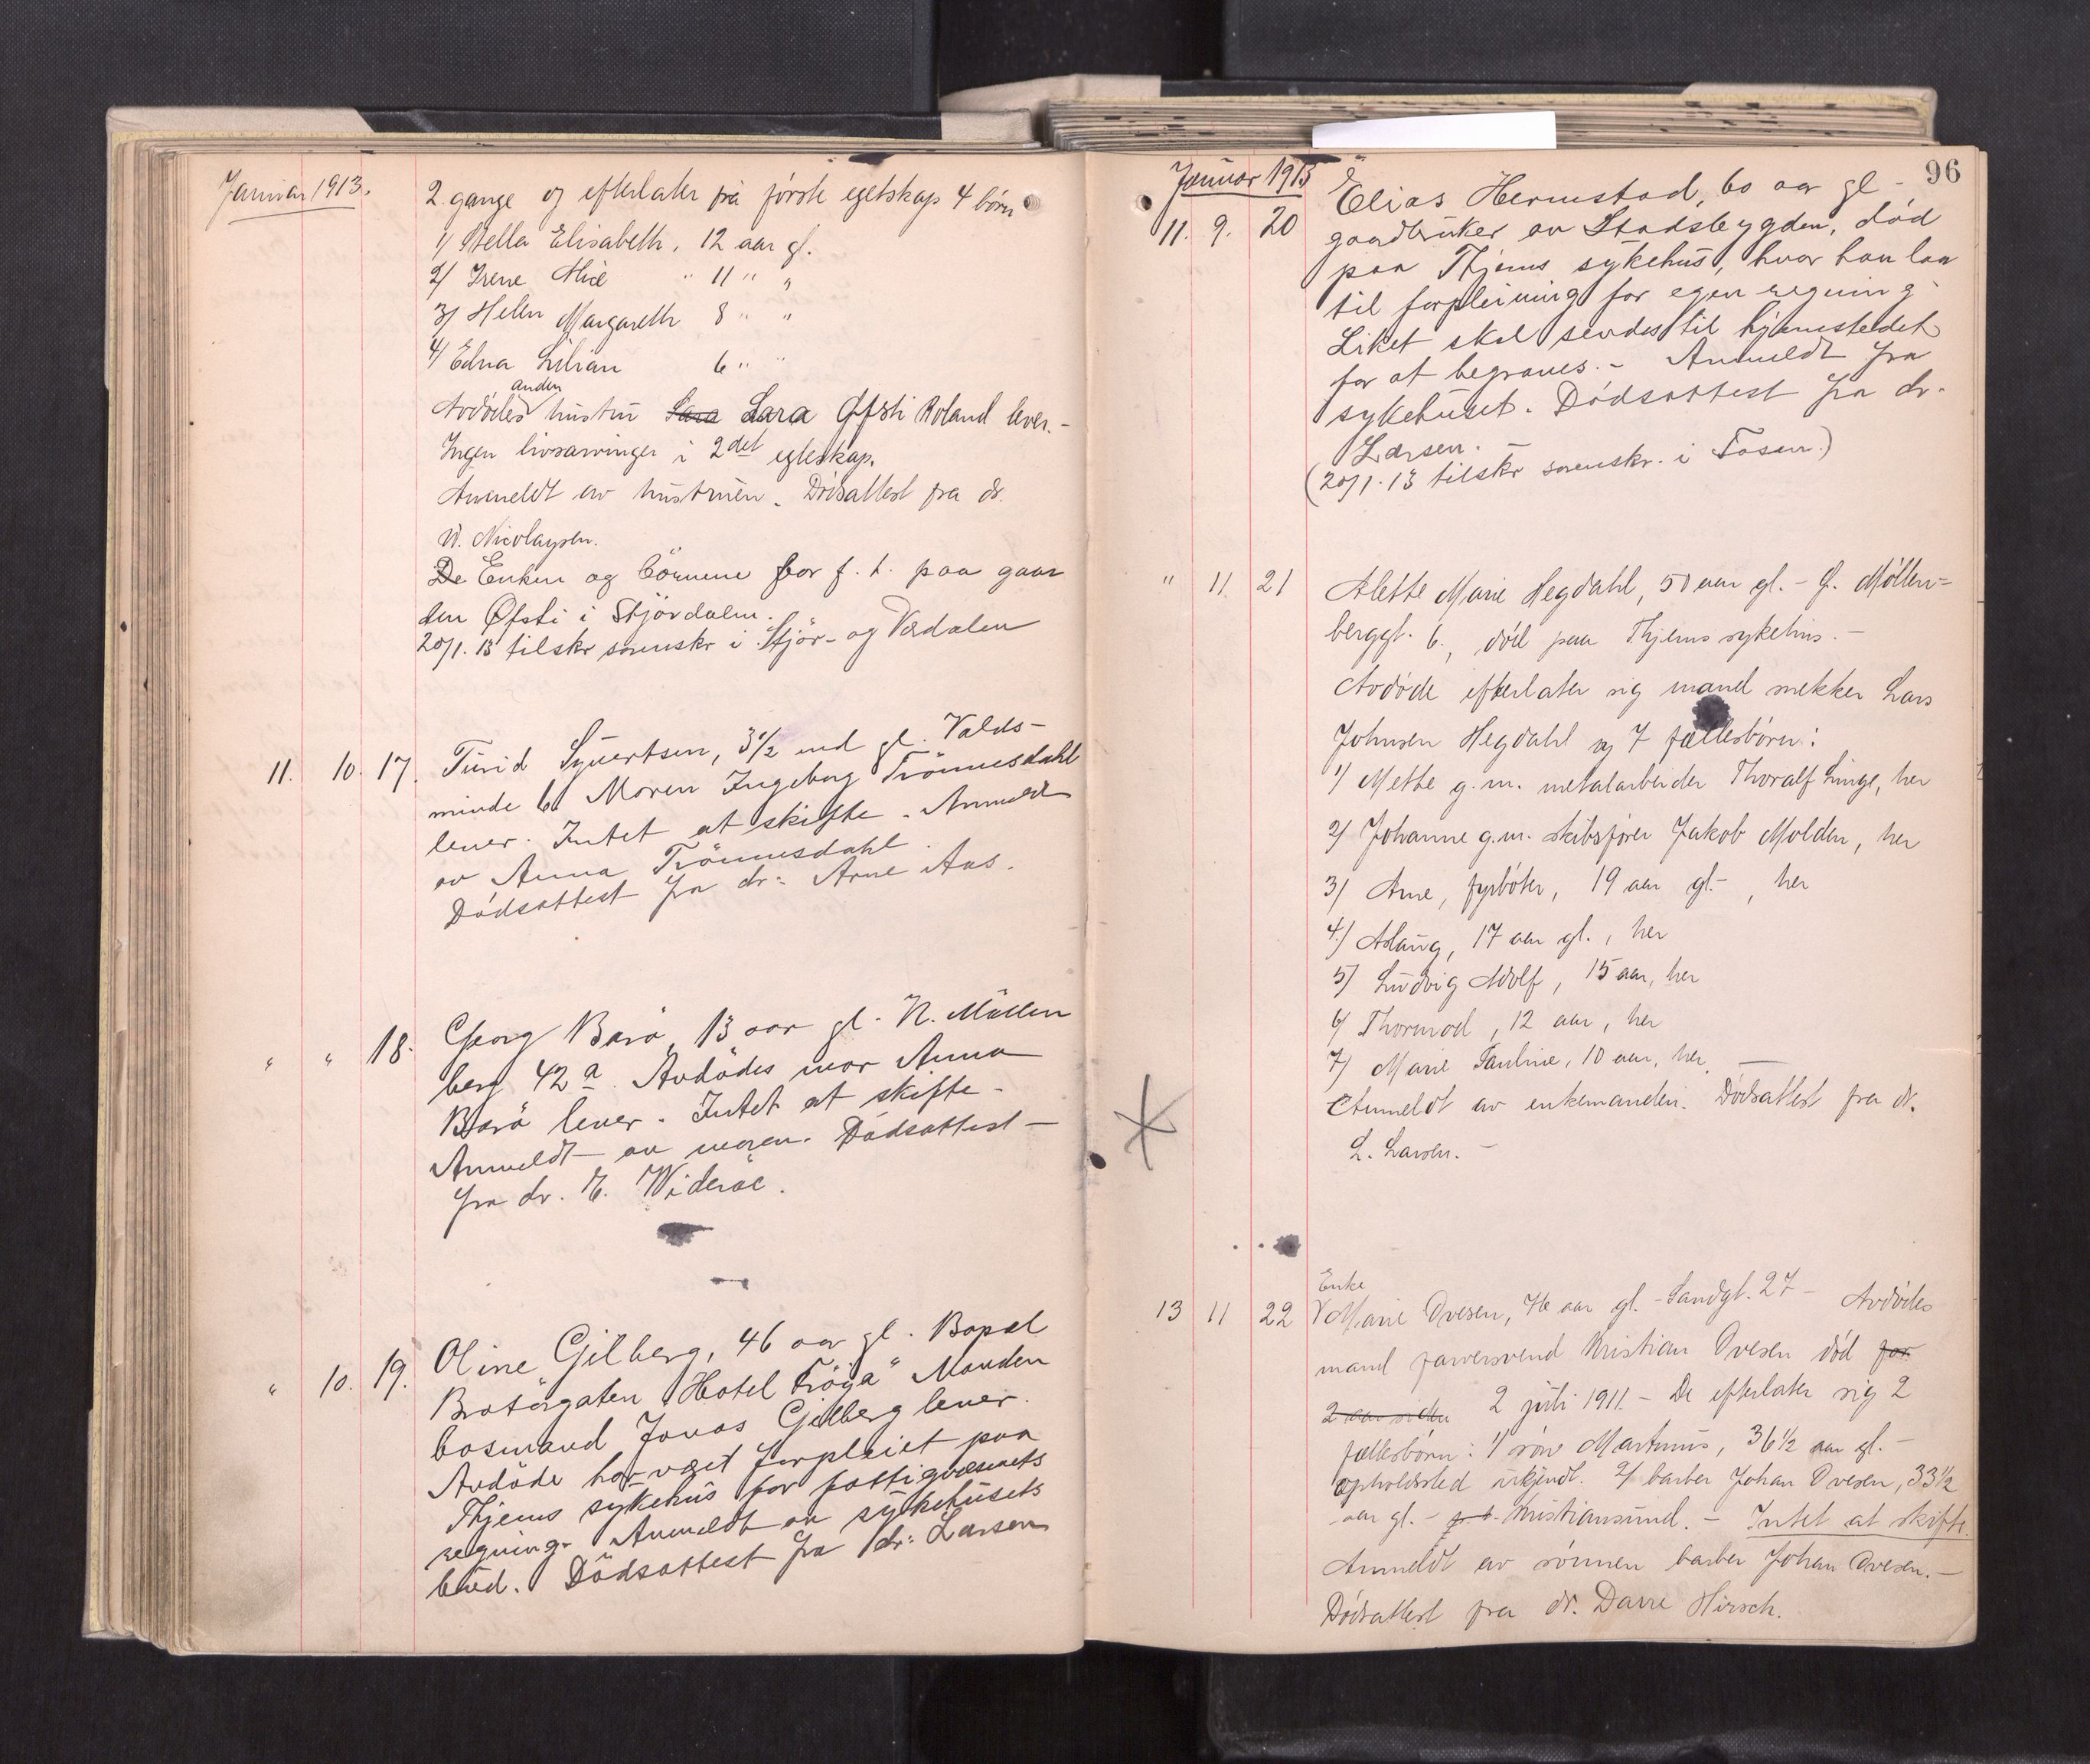 Januar 1913.
2 gange og efterlater fra første egteskap 4 børn
1/ Stella Elisabeth, 12 aar gl.
2/ Irene Alice " 11 " "
3/ Helen Margareth 8 " "
4/ Edna Lilian 6 " "
anden
Avdødes hustru Sara Sara Øfsti Roland lever. -
Ingen livsarvinger i 2det egteskap.
Anmeldt av hustruen. Dødsattest fra dr.
W. Nicolaysen.
De Enken og børnene bor f. t. paa gaar
den Øfsti i Stjørdalen.
20/1. 13 tilskr sorenskr i Stjør- og Værdalen
11. 10. 17. Turid Syvertsen, 3 1/2 md gl. Valds-
minde 6 Moren Ingeborg Trønnesdahl
lever. Intet at skifte. Anmeldt
av Anna Trønnesdahl.
Dødsattest fra dr. Arne Aas.
" " 18. Georg Barø, 13 aar gl. N. Møllen
berg 42 a. Avdødes mor Anna
Barø lever. Intet at skifte -
Anmeldt av moren. Dødsattest -
fra dr. E. Widerøe.
" 10. 19. Oline Gjelberg, 46 aar gl. Bopæl
Bratørgaten "Hotel Frøya" Manden
baasmand Jonas Gjelberg lever.
Avdøde har været forpleiet paa
Thjems sykehus for fattigvæsenets
regning. Anmeldt av sykehusets
bud. Dødsattest fra dr. Larsen
96
Januar 1913
11. 9. 20 Elias Hermstad, 60 aar gl -
gaardbruker av Stadsbygden, død
paa Thjems sykehus, hvor han laa
til forpleining for egen regning.
Liket skal sendes til hjemstedet
for at begraves. - Anmeldt fra
sykehuset. Dødsattest fra dr.
Larsen. -
(20/1. 13 tilskr sorenskr. i Fosen.)
" 11. 21 Alette Marie Hegdahl, 50 aar gl. - Ø. Møllen-
berggt. 6., død paa Thjems sykehus. -
Avdøde efterlater sig mand snekker Lars
Johnsen Hegdahl og 7 fællesbørn:
1/ Mette g.m. metalarbeider Thoralf Linge, her
2/ Johanne g.m. skibsfører Jakob Molden, her
3/ Arne, fyrbøter, 19 aar gl. -, her
4/ Aslaug, 17 aar gl., her
5/ Ludvig Adolf, 15 aar, her
6/ Thormod, 12 aar, her
7/ Marie Pauline, 10 aar, her. -
Anmeldt av enkemanden. Dødsattest fra dr.
L. Larsen. -
Enke
13 11 22 Marie Ovesen, 76 aar gl. - Sandgt. 27 - Avdødes
mand farversvend Kristian Ovesen død for
2 aar siden 2 juli 1911. - De efterlater sig 2
fællesbørn: 1/ søn Martinus, 36 1/2 aar gl. -
opholdssted ukjendt. 2/ barber Johan Ovesen, 33 1/2
aar gl. - f. t. Kristiansund. - Intet at skifte.
Anmeldt av sønnen barber Johan Ovesen. -
Dødsattest fra dr. Darre Hirsch.